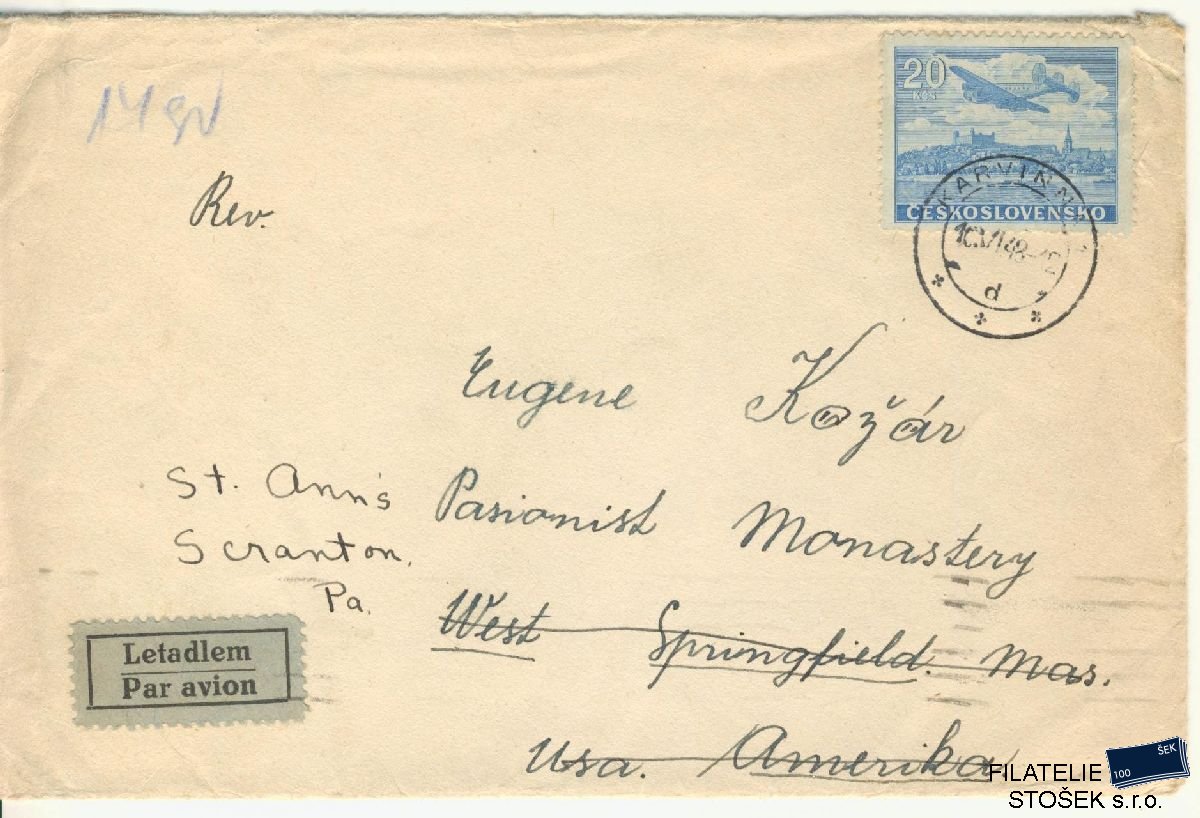 14 gr
20
Kčs
ČESKOSLOVENSKO
KARVINNÁ
10.VI.48
d
Rev.
Eugene Kožár
St. Ann's
Pasionist Monastery
Scranton,
Pa.
West Springfield. Mas.
Usa. Amerika
Letadlem
Par avion
ŠEK
100
FILATELIE
STOŠEK s.r.o.